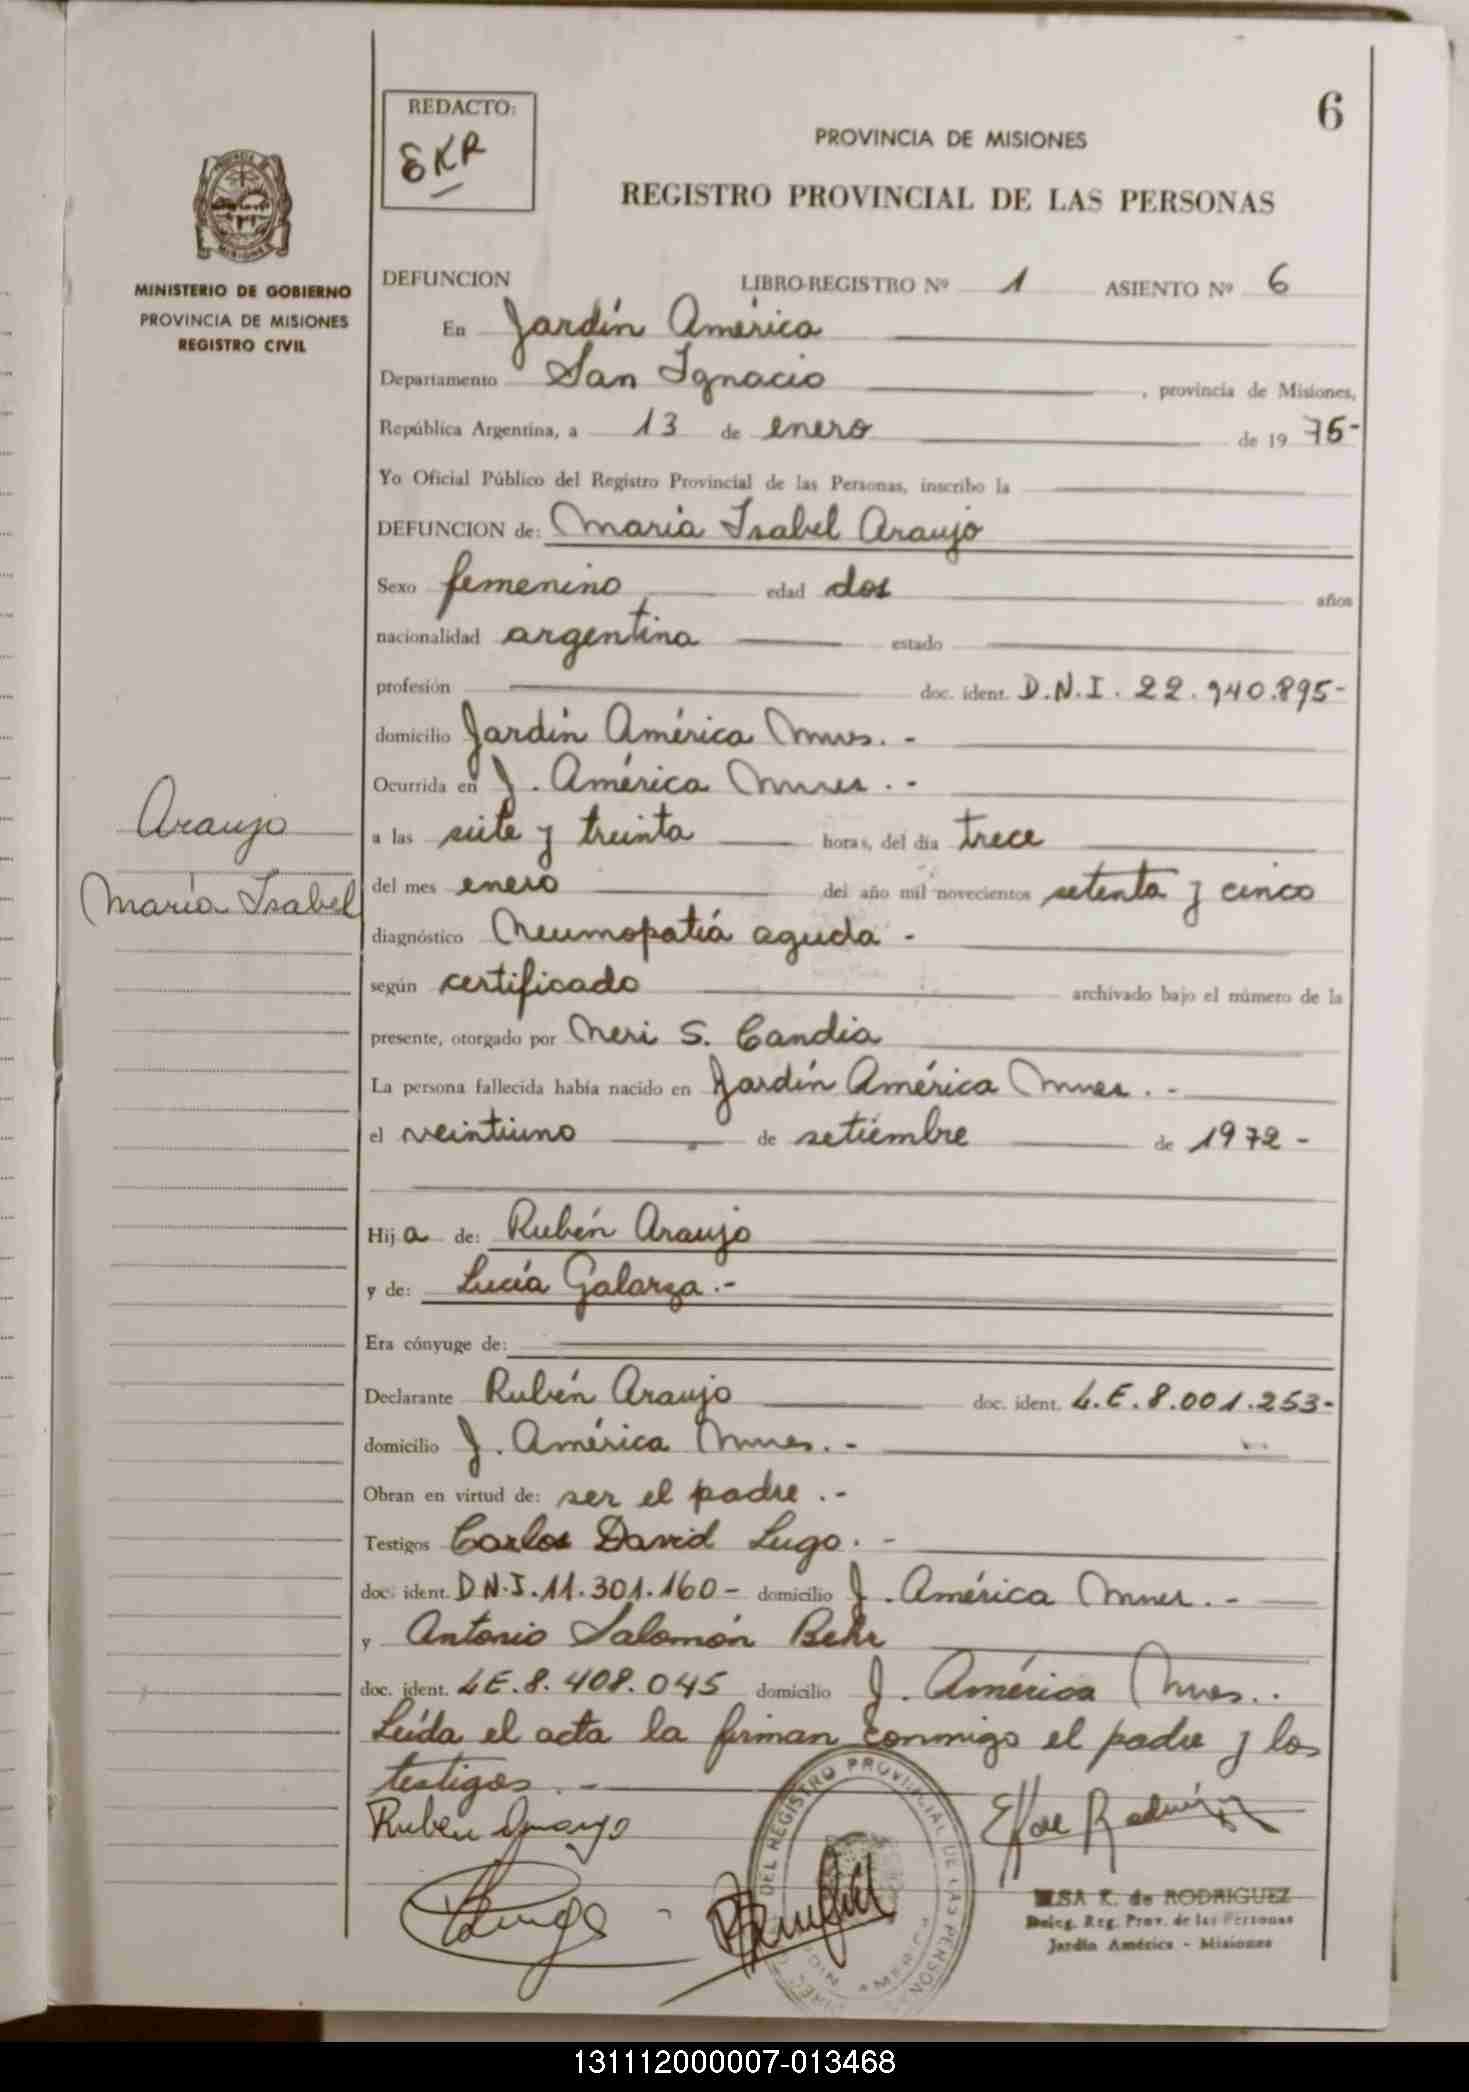 6
REDACTO:
EKR
PROVINCIA DE MISIONES
REGISTRO PROVINCIAL DE LAS PERSONAS
MINISTERIO DE GOBIERNO
PROVINCIA DE MISIONES
REGISTRO CIVIL
DEFUNCION LIBRO-REGISTRO Nº 1 ASIENTO Nº 6
En Jardín América
Departamento San Ignacio, provincia de Misiones,
República Argentina, a 13 de enero de 1975-
Yo Oficial Público del Registro Provincial de las Personas, inscribo la
DEFUNCION de: María Isabel Araujo
Sexo femenino edad dos años
nacionalidad argentina estado
profesión doc. ident. D.N.I. 22.940.895-
domicilio Jardín América Mnes. -
Ocurrida en J. América Mnes. -
a las siete y treinta horas, del día trece
del mes enero del año mil novecientos setenta y cinco
diagnóstico Neumopatía aguda -
según certificado archivado bajo el número de la
presente, otorgado por Neri S. Candia
La persona fallecida había nacido en Jardín América Mnes. -
el veintiuno de setiembre de 1972 -
Araujo
María Isabel
Hija de: Rubén Araujo
y de: Lucía Galarza.-
Era cónyuge de:
Declarante Rubén Araujo doc. ident. L.E. 8.001.253-
domicilio J. América Mnes. -
Obran en virtud de: ser el padre .-
Testigos Carlos David Lugo. -
doc. ident. D.N.I. 11.301.160- domicilio J. América Mnes. -
y Antonio Salomón Behr
doc. ident. L.E. 8.408.045 domicilio J. América Mnes..
Leída el acta la firman conmigo el padre y los
testigos. -
Ruben Araujo
DEL REGISTRO PROVINCIAL DE LAS PERSON
ELSA K. de RODRIGUEZ
Deleg. Reg. Prov. de las Personas
Jardín América - Misiones
131112000007-013468